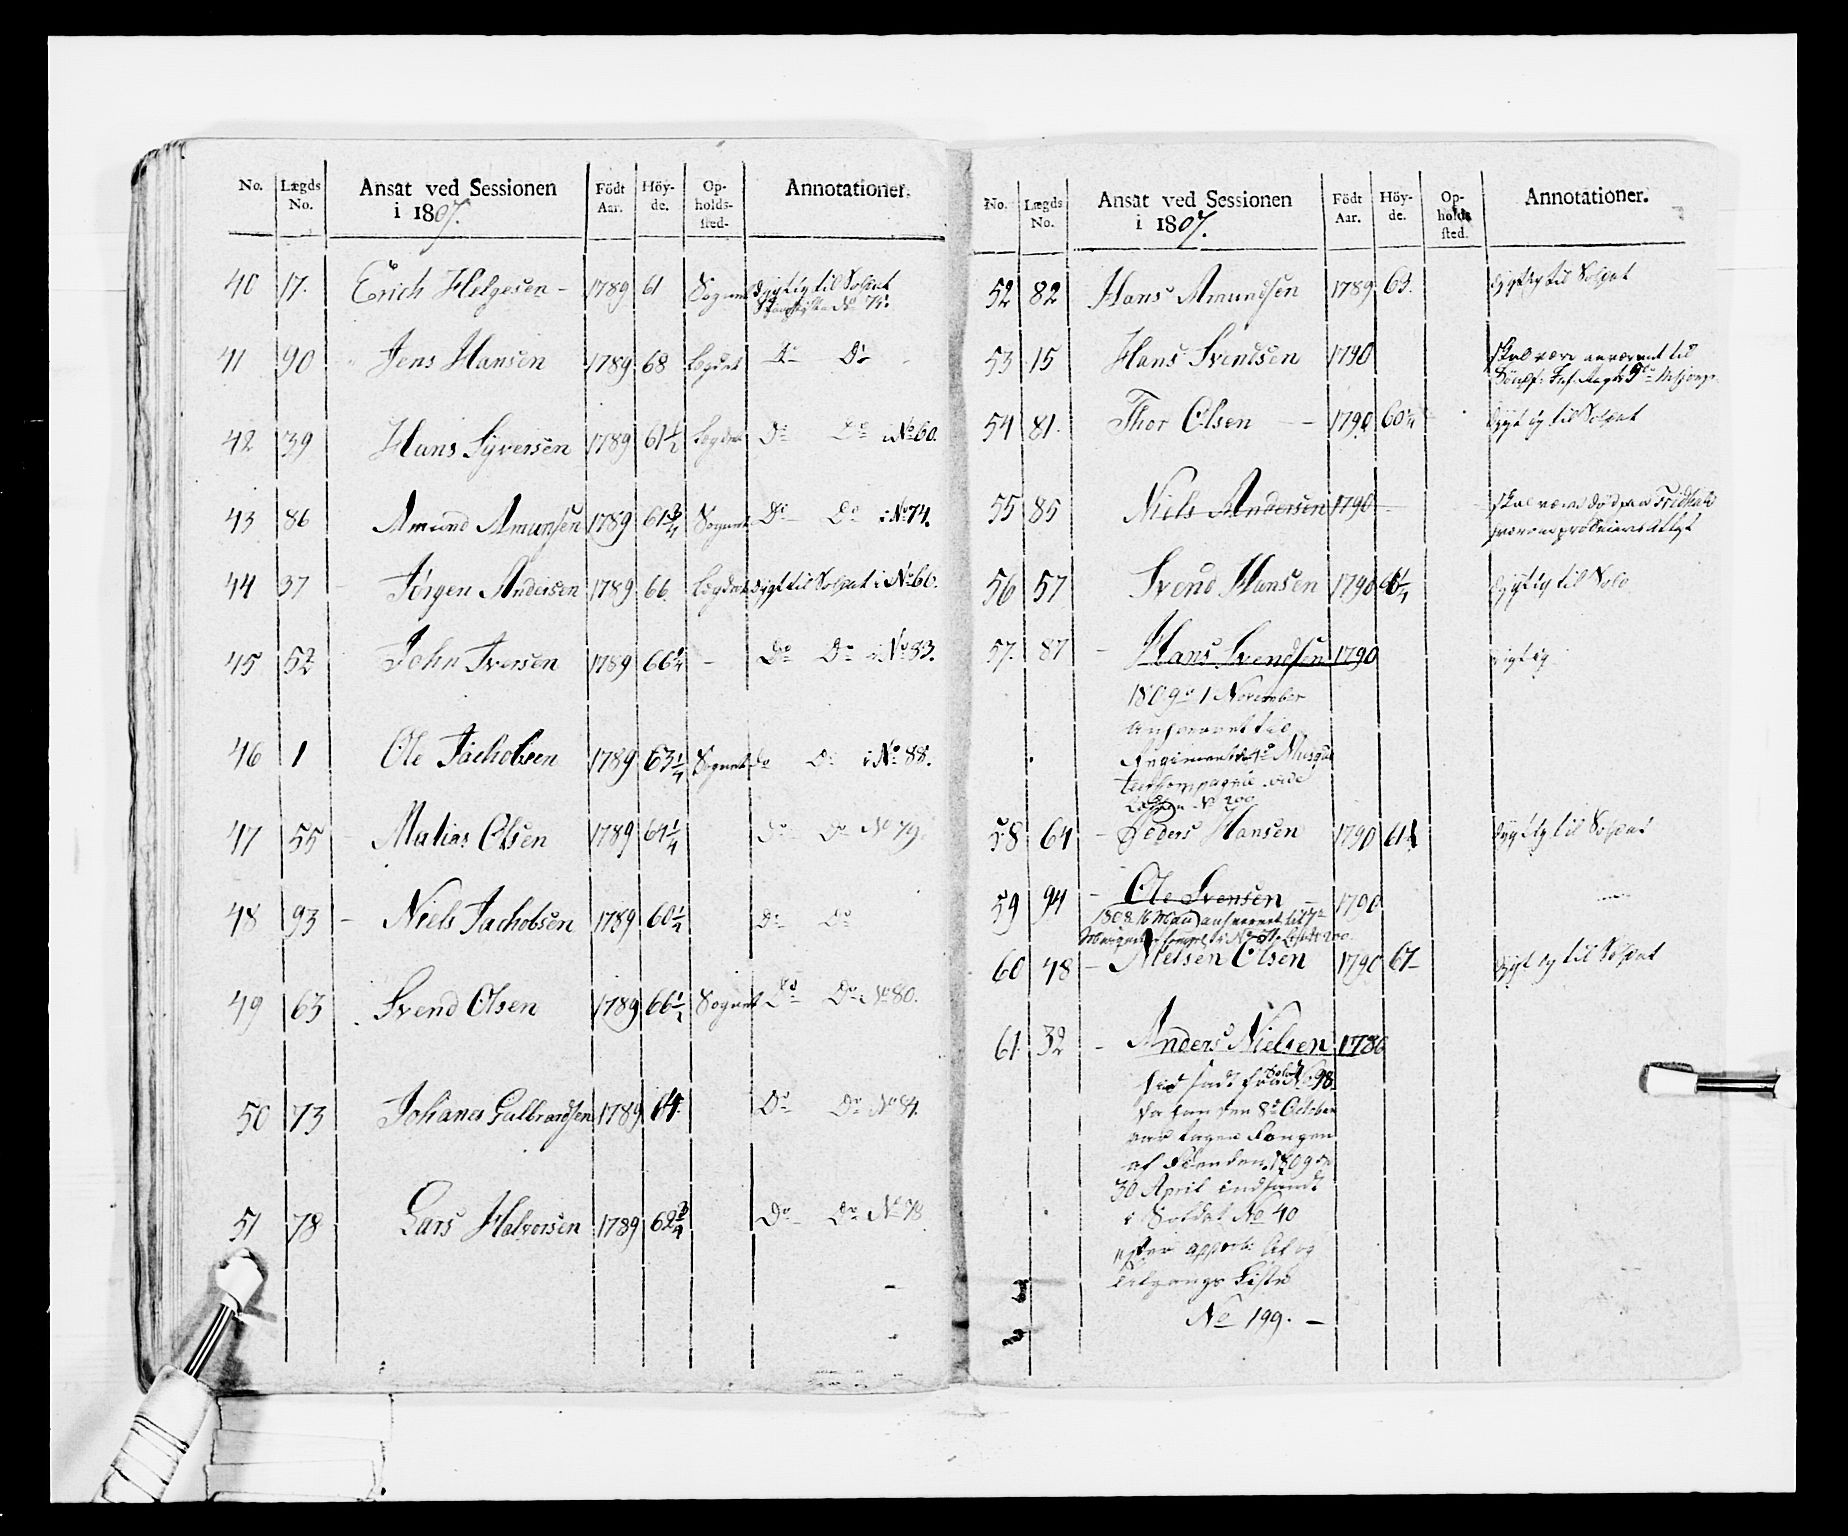 No. Lægds No. Ansat ved Sessionen i 1807. Födt Aar. Höyde. Opholdssted. Annotationer.
40 17. Erich Helgesen - 1789 61 Sognet dygtig til Soldat
No 75.
41 90 Jens Hansen 1789 68 Legdet Do Do
42 39 Hans Syversen 1789 61 1/2 Legdet Do Do i No 60.
43 86 Amund Amunsen 1789 61 3/4 Sognet Do Do i No 74.
44 37 Jørgen Andersen 1789 66 Legdet dygt til Soldat i No 60.
45 52 John Iversen 1789 66 1/4 - Do Do i No 83.
46 1 Ole Jachobsen 1789 63 1/4 Sognet Do Do i No 88.
47 55 Matias Olsen 1789 64 1/4 Do Do No 79.
48 93 - Niels Jachobsen 1789 60 1/4 Do Do
49 63 Svend Olsen 1789 66 1/2 Sognet Do Do No 80.
50 73 Johanes Gulbrandsen 1789 64. Do Do No 84.
51 78 Lars Halvorsen 1789 62 3/4 Do Do No 78
No. Lægds No. Ansat ved Sessionen i 1807. Födt Aar. Höyde. Opholdssted. Annotationer.
52 82 Hans Amundsen 1789 63. dygtig til Soldat
53 15 Hans Svendsen 1790 skal være anværvet til
54 81. Thor Olsen - - 1790 60 1/4 dygtig til Soldat
55 85 Niels Andersen 1790 skal være død paa
56 57 Svend Hansen 1790 dygtig til Sold
57. 87 - Hans Svendsen 1790 dygtig
1809 1 November
anhvervet til
Regimentets Musque
teer Compagnie vide
No 200
58 64 - Peders Hansen 1790 61 dygtig til Soldat
59 94 - Ole Svensen - 1790
1808 16 May anhvervet til
60 48 - Nielsen Olsen 1790 67 - dygtig til Soldat
61. 32 - Anders Nielsen 1786
hid sadt fra No 98
da han den 8de October
var tagen Fangen
af Fienden. 1809 den
30 April indsandt
i Soldat No 40
efter apporb: Af og
Tilgangs Liste
No 199. -